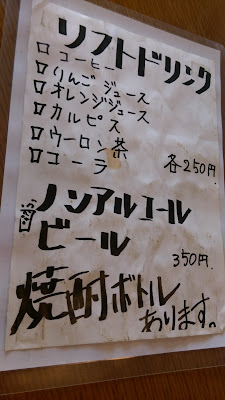 ソフトドリンク
コーヒー
りんごジュース
オレンジジュース
カルピス
ウーロン茶
コーラ
各250円
ノンアルコール
ビール
350円.
焼酎ボトル
あります。